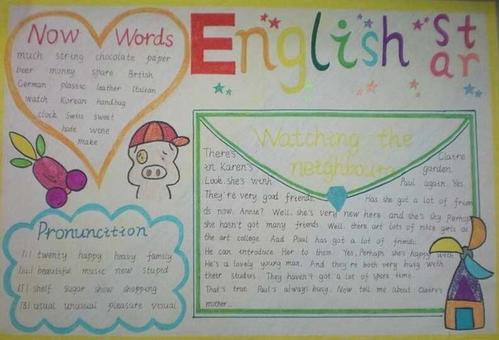 English star
Now Words
much string chocolate paper
beer money spare British
German plastic leather Italian
watch Korean handbag
clock Swiss sweet
hate wine
make
Pronunciation
[i] twenty happy heavy family
[u:] beautiful music new stupid
[ʃ] shelf sugar show shopping
[ʒ] usual unusual pleasure visual
Watching the
neighbours
There's Claire
in Karen's garden.
Look, she's with Paul again. Yes.
They're very good friends. Has she got a lot of frien
ds now, Anna? Well, she's very new here and she's shy. Perhaps
she hasn't got many friends. Well, there are lots of nice girls at
the art college. And Paul has got a lot of friends.
He can introduce her to them. Yes, Perhaps she's happy with
He's a lovely young man. And they're both very busy with
their studies. They haven't got a lot of spare time.
That's true. Paul's always busy. Now tell me about Claire's
mother...